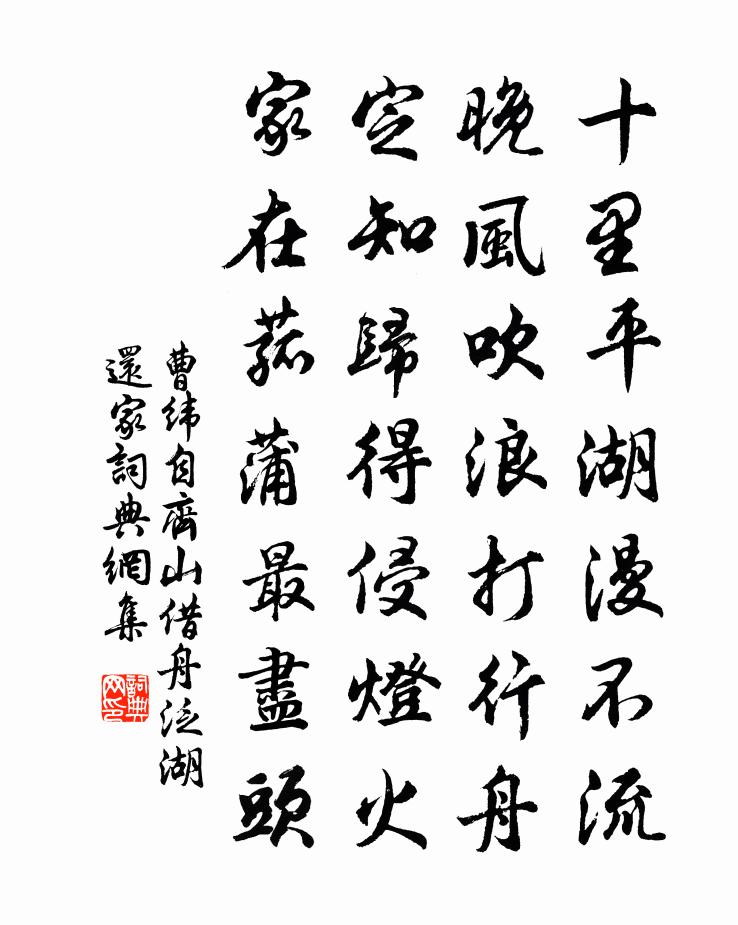 十里平湖漫不流
晚風吹浪打行舟
定知歸得侵燈火
家在菰蒲最盡頭
曹緯自齊山借舟泛湖
還家詞典網集
詞典
网印